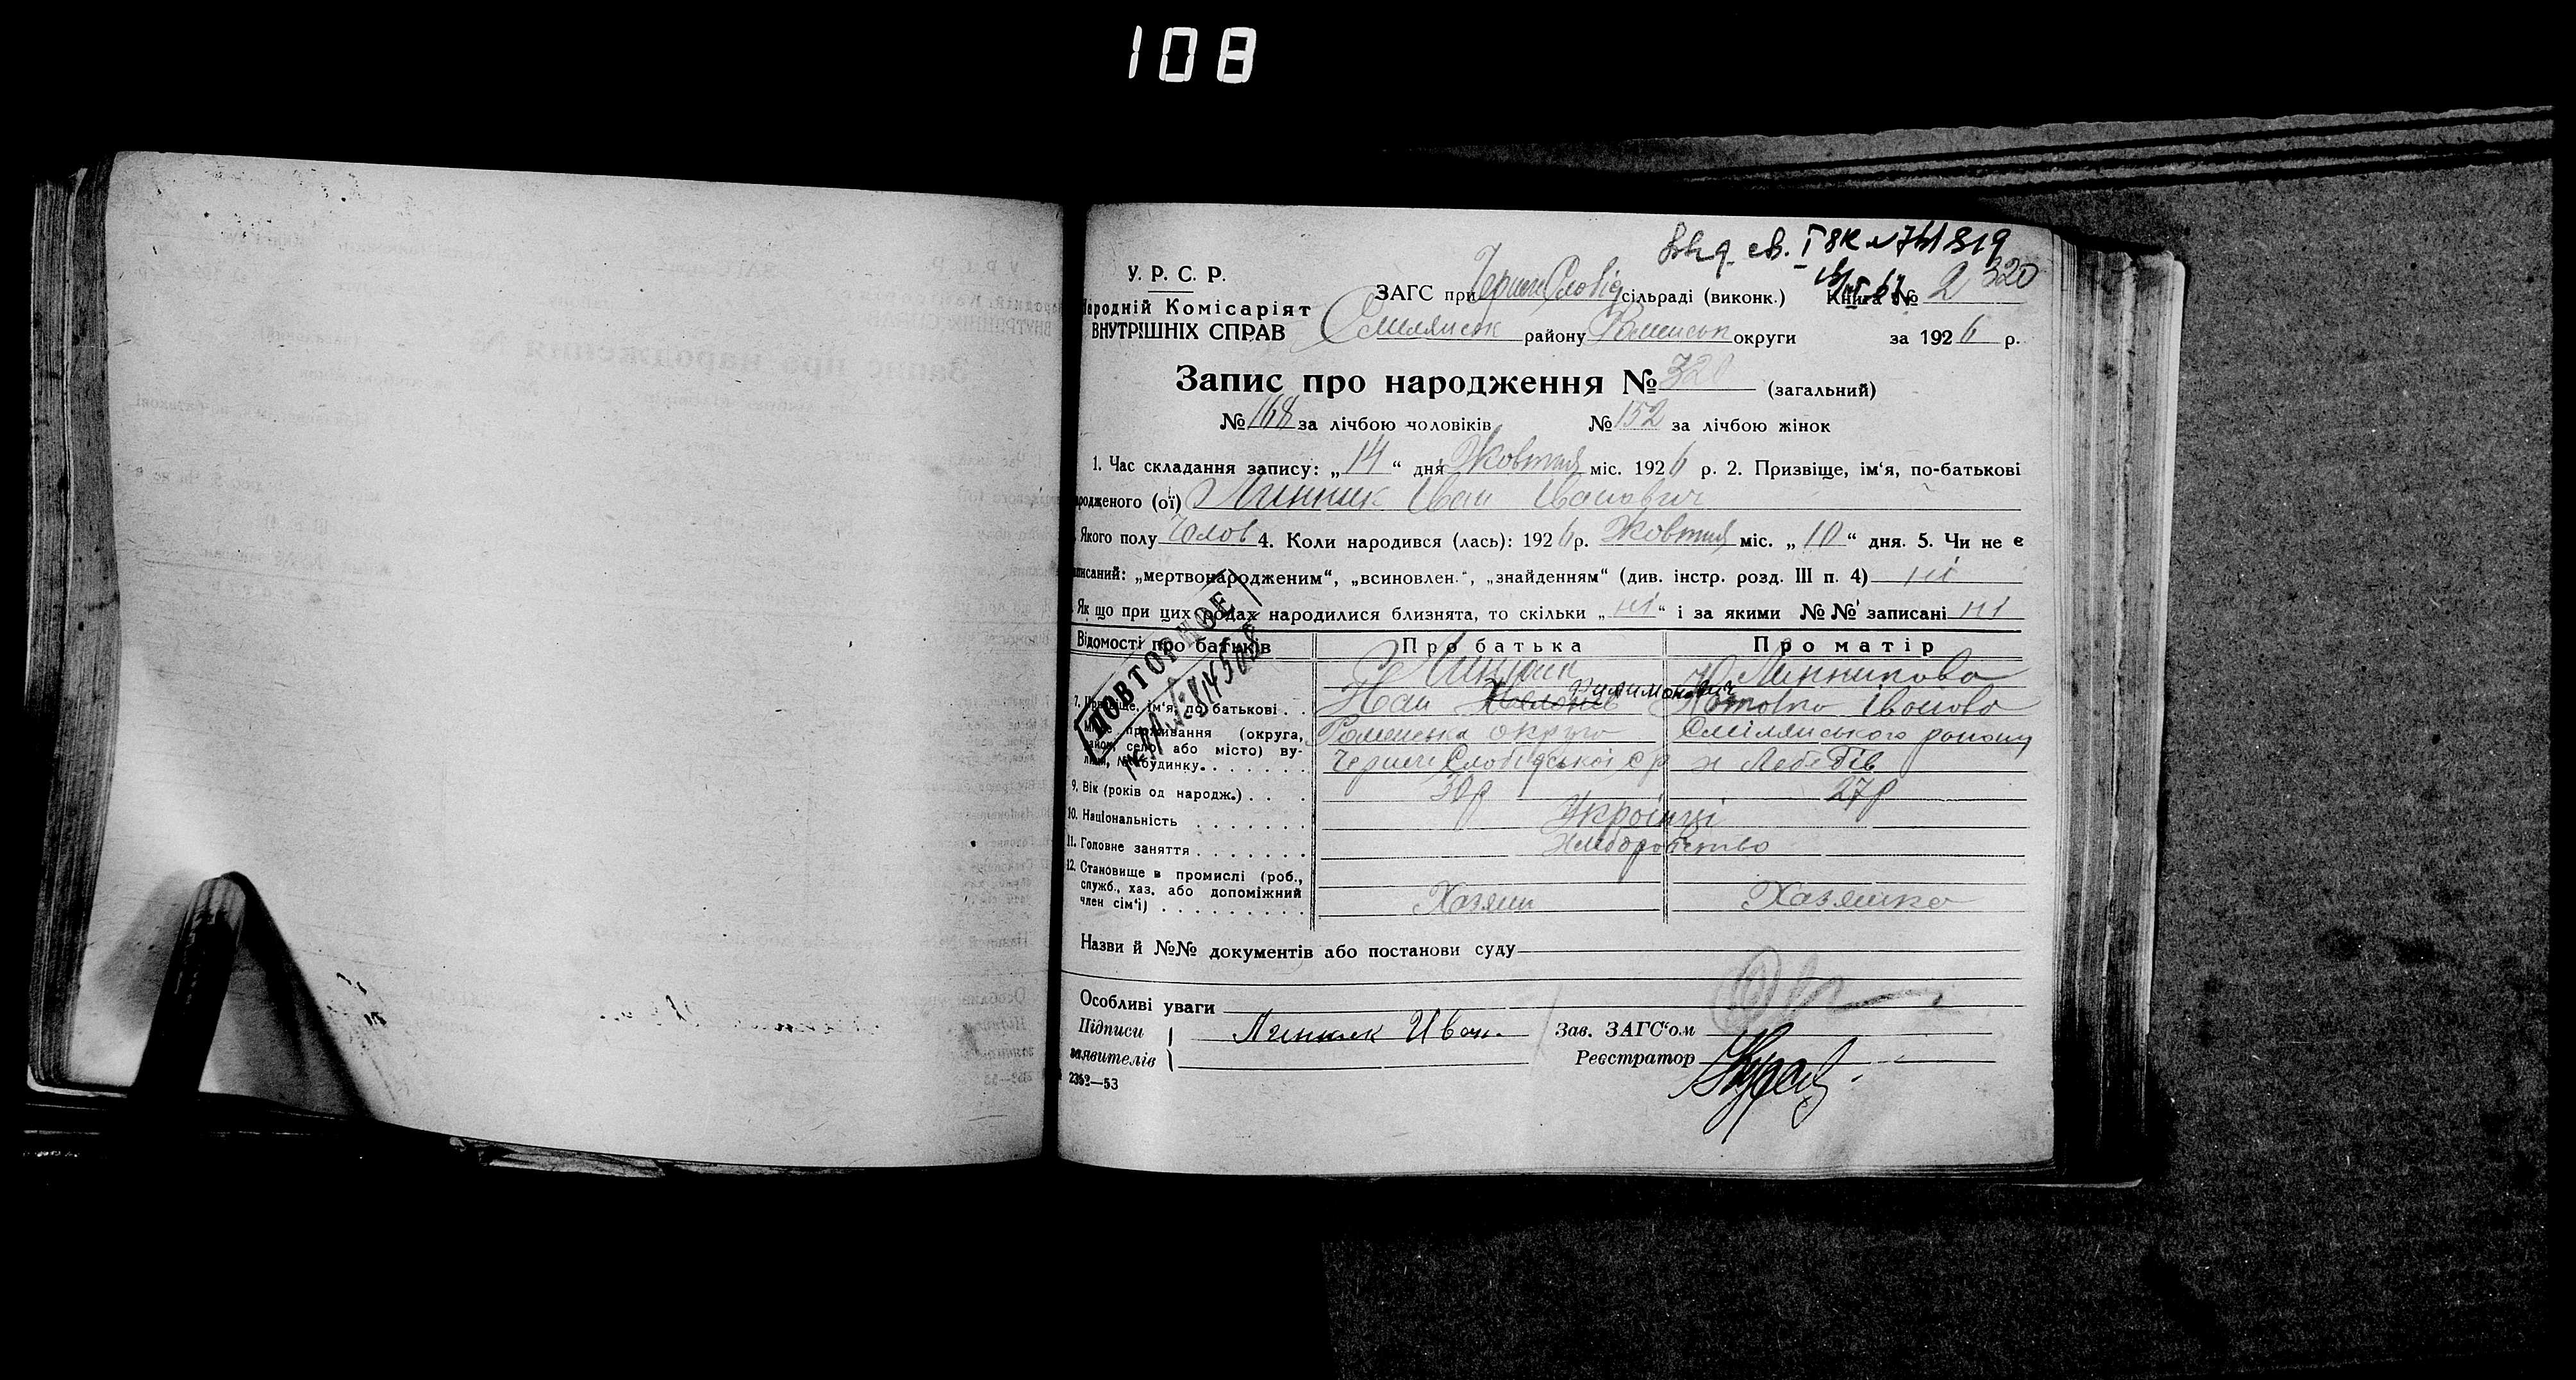 108
320
У. Р. С. Р.
Народній Комісаріят
ВНУТРІШНІХ СПРАВ
ЗАГС при Черче Слобід сільраді (виконк.) Книга № 2
Смілянськ району Роменськ округи за 1926 р.
Запис про народження № 320 (загальний)
№ 168 за лічбою чоловіків № 152 за лічбою жінок
1. Час складання запису: „14“ дня Жовтня міс. 1926 р. 2. Призвіще, ім‘я, по-батькові
родженого (ої) Линник Іван Іванович
Якого полу Чолов 4. Коли народився (лась): 1926 р. Жовтня міс. „10“ дня. 5. Чи не є
писаний: „мертвонародженим“, „всиновлен.“, „знайденням“ (див. інстр. розд. III п. 4) ні
Як що при цих родах народилися близнята, то скільки „ні“ і за якими №№ записані ні
Відомості про батьків Про батька Про матір
Линник Линникова
7. Призвіще, ім‘я, по батькові . . Іван Пилимонович Іванова
Місце проживання (округа, район, село, або місто) вулиця, № будинку. Роменська округа Смілянського району
Слобідської с/р х Лебедів
9. Вік (років од народж.) . . . 30р 27р
10. Національність . . . . . . . Українці
11. Головне заняття . . . . . . . Хліборобство
12. Становище в промислі (роб.,
служб., хаз. або допоміжний
член сім‘ї) . . . . . . . . . Хазяин Хазяйка
Назви й №№ документів або постанови суду
Особливі уваги
Підписи
заявителів
Линник Иван. Зав. ЗАГС‘ом
Реєстратор
2352—53
ПОВТОРНОЕ